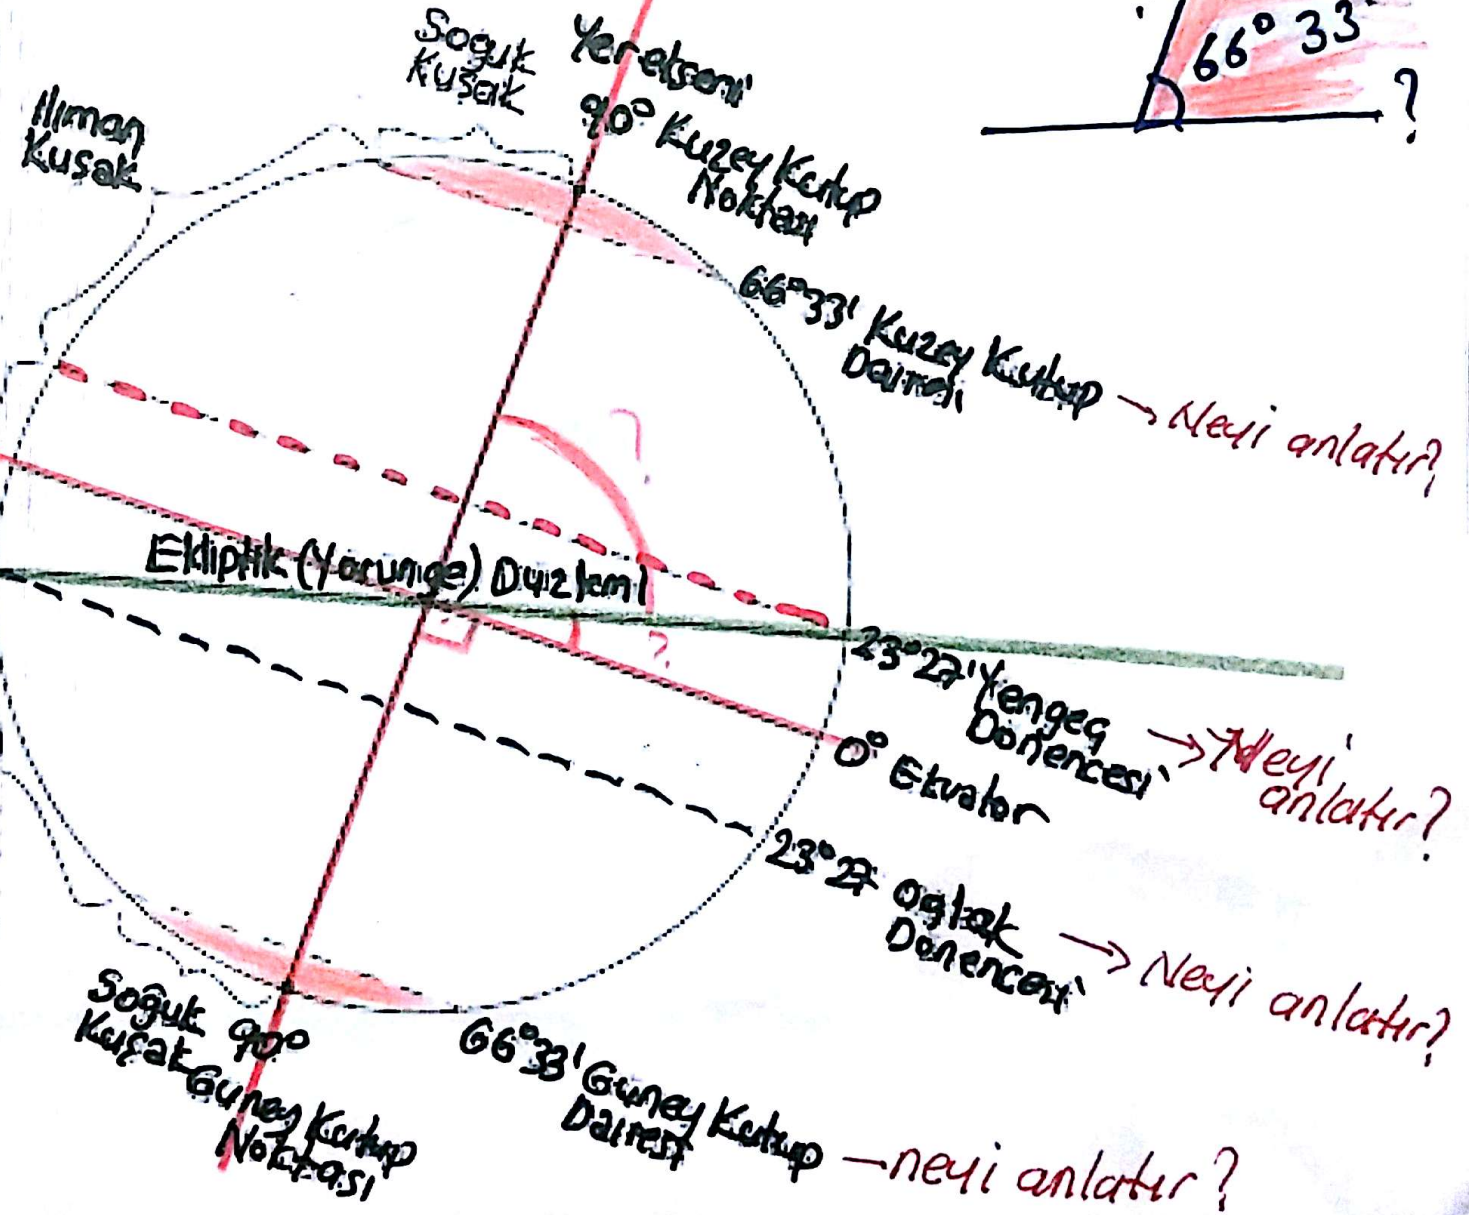 Soğuk
Kuşak
Yer ekseni
90° Kuzey Kutup
Noktası
66° 33'
?
Ilıman
Kuşak
66°33' Kuzey Kutup
Dairesi
→ Neyi anlatır?
?
Ekliptik (Yörünge) Düzlemi
?
23°27' Yengeç
Dönencesi
→ Neyi
anlatır?
0° Ekvator
23°27 Oğlak
Dönencesi
→ Neyi anlatır?
Soğuk
Kuşak
90°
Güney Kutup
Noktası
66°33' Güney Kutup
Dairesi
neyi anlatır?